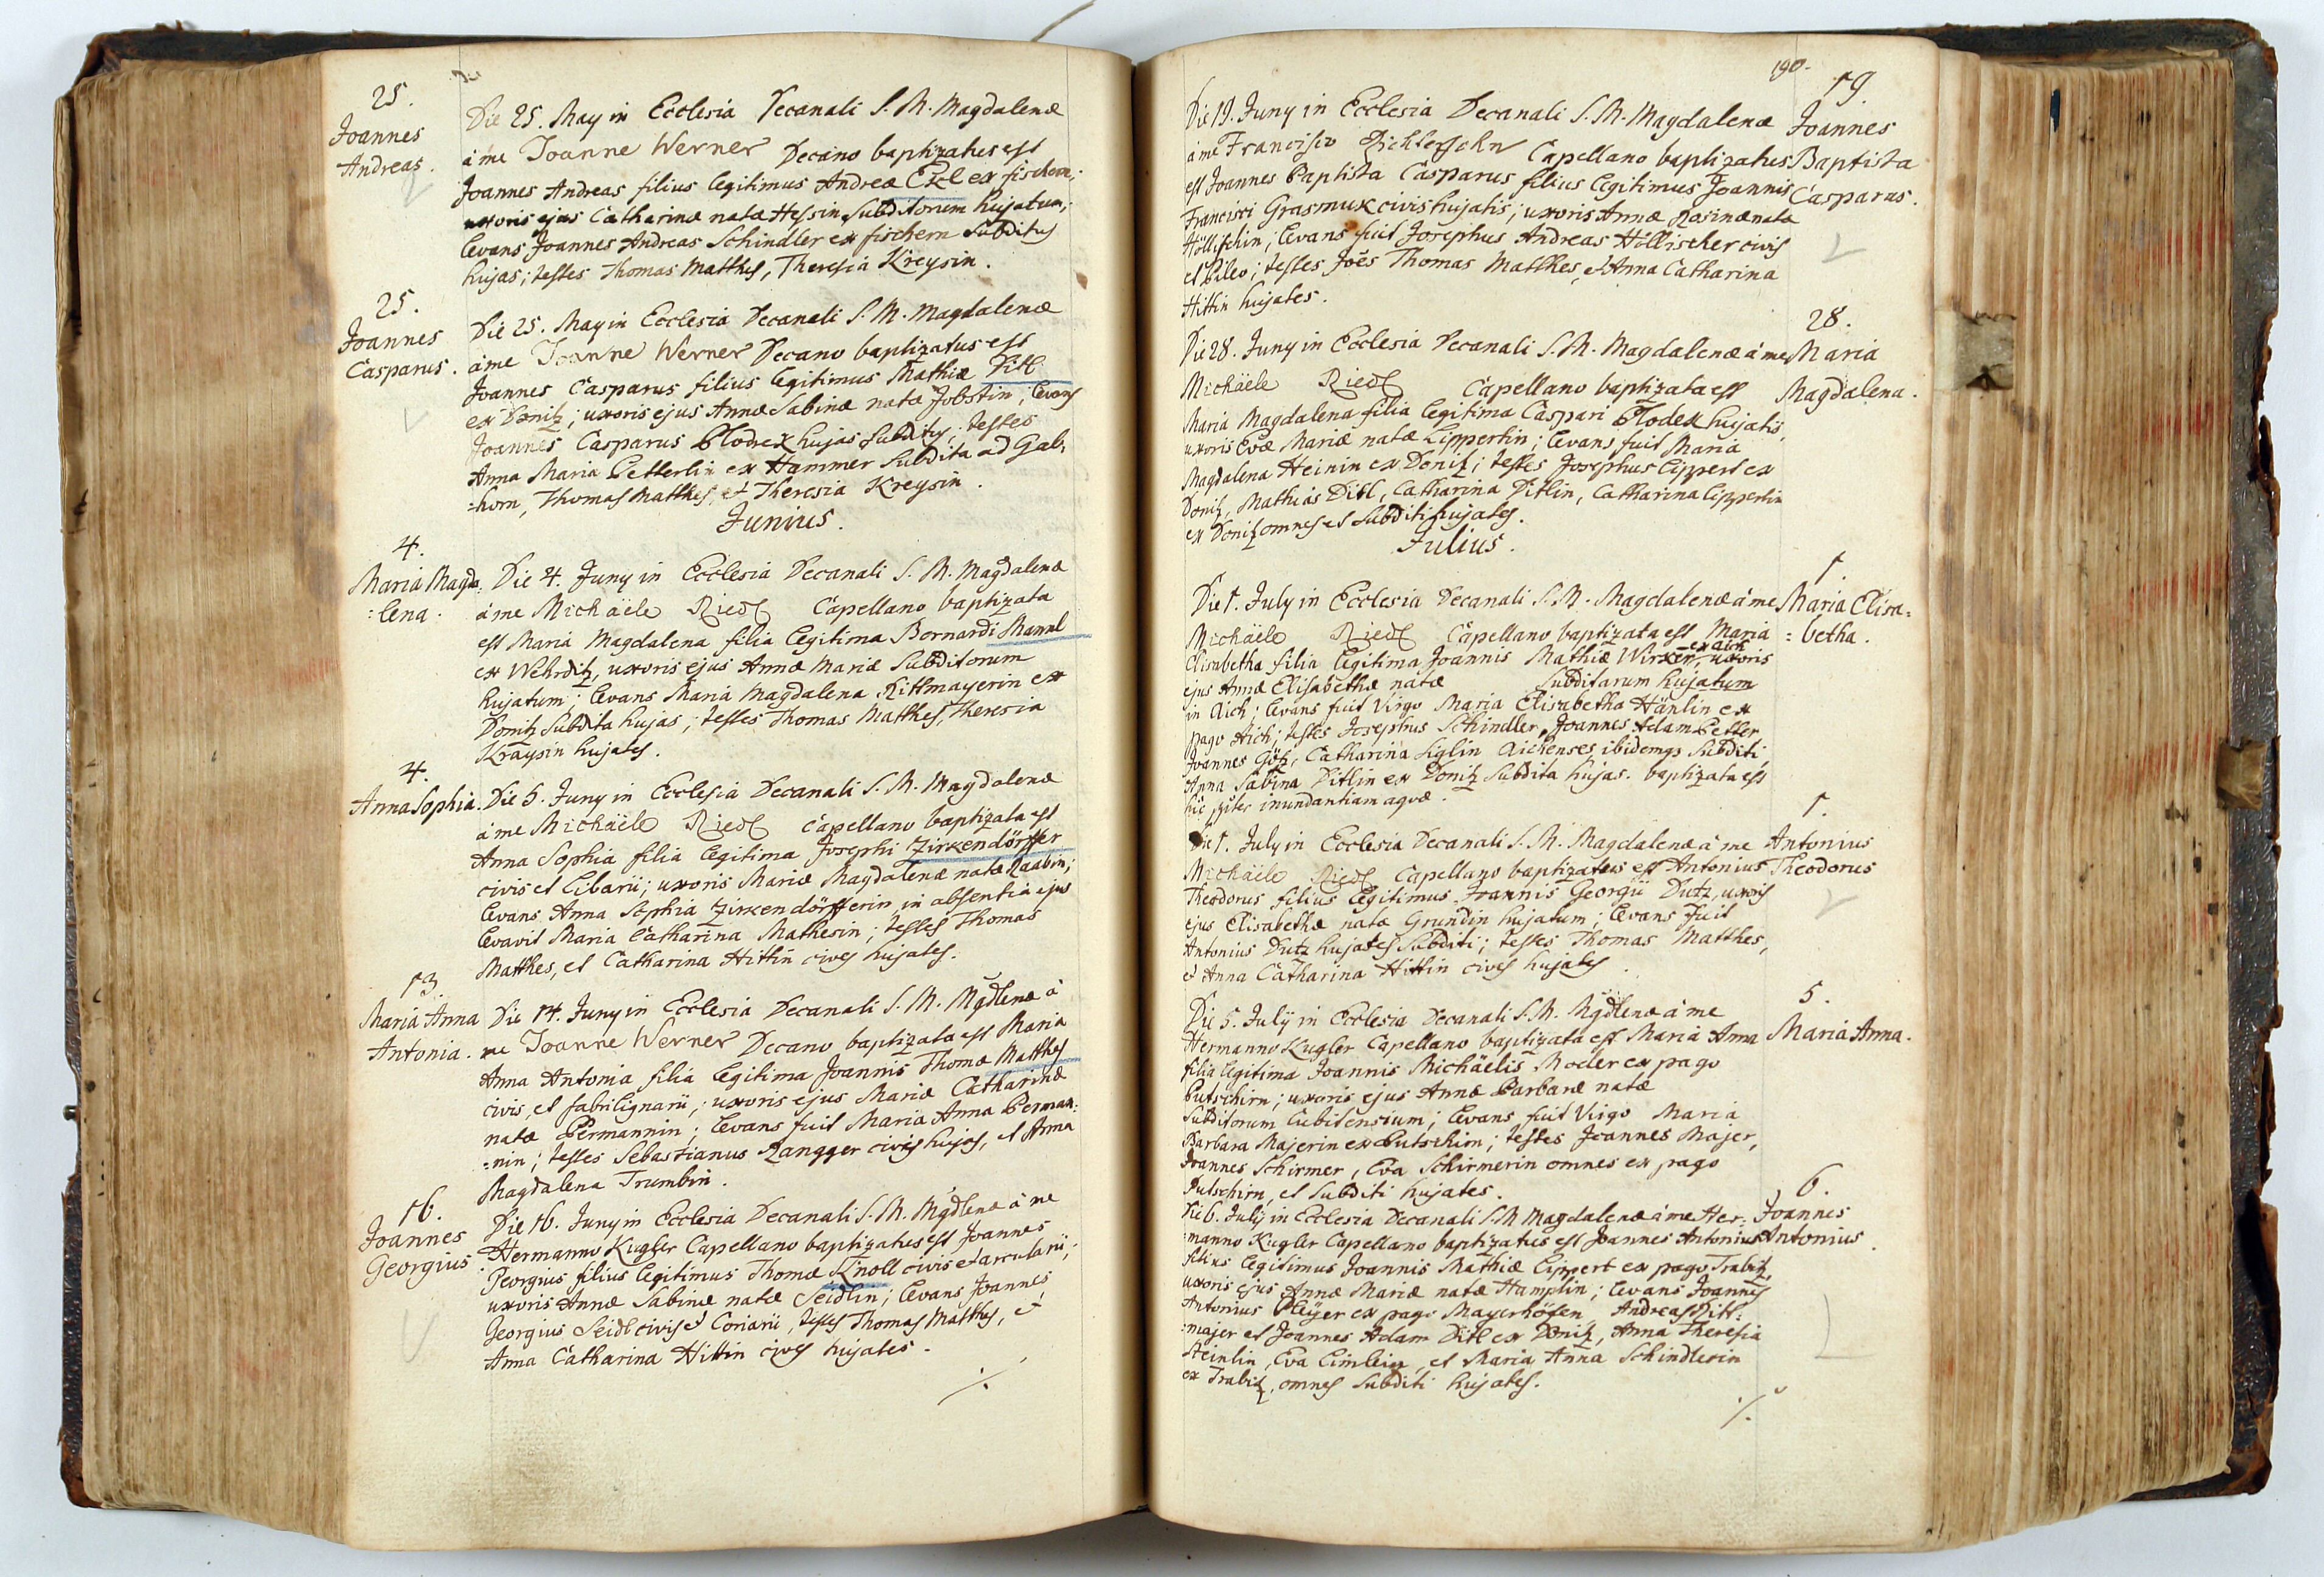 25.
Joannes
Andreas.
Die 25. May in Ecclesia Decanali S. M. Magdalenæ
à me Joanne Werner Decano baptizatus est
Joannes Andreas filius legitimus Andreæ Ekl ex fischern;
uxoris ejus Catharinæ natæ Hessin Subditorum hujatum;
levans Joannes Andreas Schindler ex fischern Subditus
hujas; testes Thomas Matthes, Theresia Kreysin.
25.
Joannes
Casparus.
Die 25. May in Ecclesia Decanali S. M. Magdalenæ
à me Joanne Werner Decano baptizatus est
Joannes Casparus filius legitimus Mathiæ Ditl
ex Donitz; uxoris ejus Annæ Sabinæ natæ Jobstin; levans
Joannes Casparus Plodek hujas Subditus; testes
Anna Maria Petterlin ex Hammer Subdita ad Gab:
=horn, Thomas Matthes, et Theresia Kreysin.
Junius.
4.
Maria Magda
=lena.
Die 4. Juny in Ecclesia Decanali S. M. Magdalenæ
à me Michäele Riedl Capellano baptizata
est Maria Magdalena filia legitima Bernardi Mannl
ex Wehrditz, uxoris ejus Annæ Mariæ Subditorum
hujatum; levans Maria Magdalena Rittmayerin ex
Donitz Subdita hujas; testes Thomas Matthes, Theresia
Kraysin hujates.
4.
Anna Sophia.
Die 5. Juny in Ecclesia Decanali S. M. Magdalenæ
à me Michäele Riedl Capellano baptizata est
Anna Sophia filia legitima Josephi Zirkendörffer
civis et libarii; uxoris Mariæ Magdalenæ natæ Raabin;
levans Anna Sophia Zirkendörfferin, in absentia ejus
levavit Maria Catharina Mathesin; testes Thomas
Matthes, et Catharina Hittin cives hujates.
13.
Maria Anna
Antonia.
Die 14. Juny in Ecclesia Decanali S. M. Mgdlenæ à
me Joanne Werner Decano baptizata est Maria
Anna Antonia filia legitima Joannis Thomæ Matthes
civis, et fabrilignarii; uxoris ejus Mariæ Catharinæ
natæ Permannin; levans fuit Maria Anna Perman:
=nin; testes Sebastianus Rangger civis hujas, et Anna
Magdalena Trumbin.
16.
Joannes
Georgius.
Die 16. Juny in Ecclesia Decanali S. M. Mgdlenæ à me
Hermanno Kugler Capellano baptizatus est Joannes
Georgius filius legitimus Thomæ Knoll civis et arcularii;
uxoris Annæ Sabinæ natæ Seidlin; levans Joannes
Georgius Seidl civis et Coriarii, testes Thomas Matthes, et
Anna Catharina Hittin cives hujates.
190.
19.
Joannes
Baptista
Casparus.
Die 19. Juny in Ecclesia Decanali S. M. Magdalenæ
à me Francisco Capellano baptizatus
est Joannes Baptista Casparus filius legitimus Joannis
Francisci Grasmuk civis hujatis; uxoris Annæ Rosinæ natæ
Höllischin; levans fuit Josephus Andreas Höllischer civis
et Pileo; testes Joes Thomas Matthes, et Anna Catharina
Hittin hujates.
28.
Maria
Magdalena.
Die 28. Juny in Ecclesia Decanali S. M. Magdalenæ à me
Michäele Riedl Capellano baptizata est
Maria Magdalena filia legitima Caspari Plodek hujatis,
uxoris Evæ Mariæ natæ Lippertin; levans fuit Maria
Magdalena Heinin ex Donitz; testes Josephus Lippert ex
Donitz, Mathias Ditl, Catharina Ditlin, Catharina Lippertin
ex Donitz omnes et Subditi hujates.
Julius.
1
Maria Elisa=
=betha.
Die 1. July in Ecclesia Decanali S. M. Magdalenæ à me
Michäele Riedl Capellano baptizata est Maria
ex Aich
Elisabetha filia legitima Joannis Mathiæ Wirker, uxoris
ejus Annæ Elisabethæ natæ Subditarum hujatum
in Aich; levans fuit Virgo Maria Elisabetha Hänlin ex
pago Aich; testes Josephus Schindler, Joannes Adam Petter
Joannes Götz, Catharina Siglin Aichenses, ibidemqs Subditi,
Anna Sabina Ditlin ex Donitz Subdita hujas. baptizata est
hic inundantiam aquæ.
1.
Antonius
Theodorus
Die 1. July in Ecclesia Decanali S. M. Magdalenæ à me
Michäele Riedl Capellano baptizatus est Antonius
Theodorus filius legitimus Joannis Georgii Dutz, uxoris
ejus Elisabethæ natæ Grundin hujatum; levans fuit
Antonius Dutz hujates Subditi; testes Thomas Matthes,
et Anna Catharina Hittin cives hujates.
5.
Maria Anna.
Die 5. July in Ecclesia Decanali S. M. Mgdlenæ à me
Hermanno Kugler Capellano baptizata est Maria Anna
filia legitima Joannis Michäelis Moder ex pago
Putschirn; uxoris ejus Annæ Barbaræ natæ
Subditorum Cubitensium; levans fuit Virgo Maria
Barbara Majerin ex Putschirn; testes Joannes Majer,
Joannes Schirmer, Eva Schirmerin omnes ex pago
Putschirn, et Subditi hujates.
6.
Joannes
Antonius.
Die 6. July in Ecclesia Decanali S. M Magdalenæ à me Her:
=manno Kugler Capellano baptizatus est Joannes Antonius
filius legitimus Joannis Mathiæ Lippert ex pago Trabitz,
uxoris ejus Annæ Mariæ natæ Hamplin; levans Joannes
Antonius Pleyer ex pago Mayerhöfen, Andreas Ritt:
=majer et Joannes Adam Ditl ex Donitz, Anna Theresia
Steinlin, Eva, et Maria Anna Schindlerin
ex Trabitz, omnes Subditi hujates.